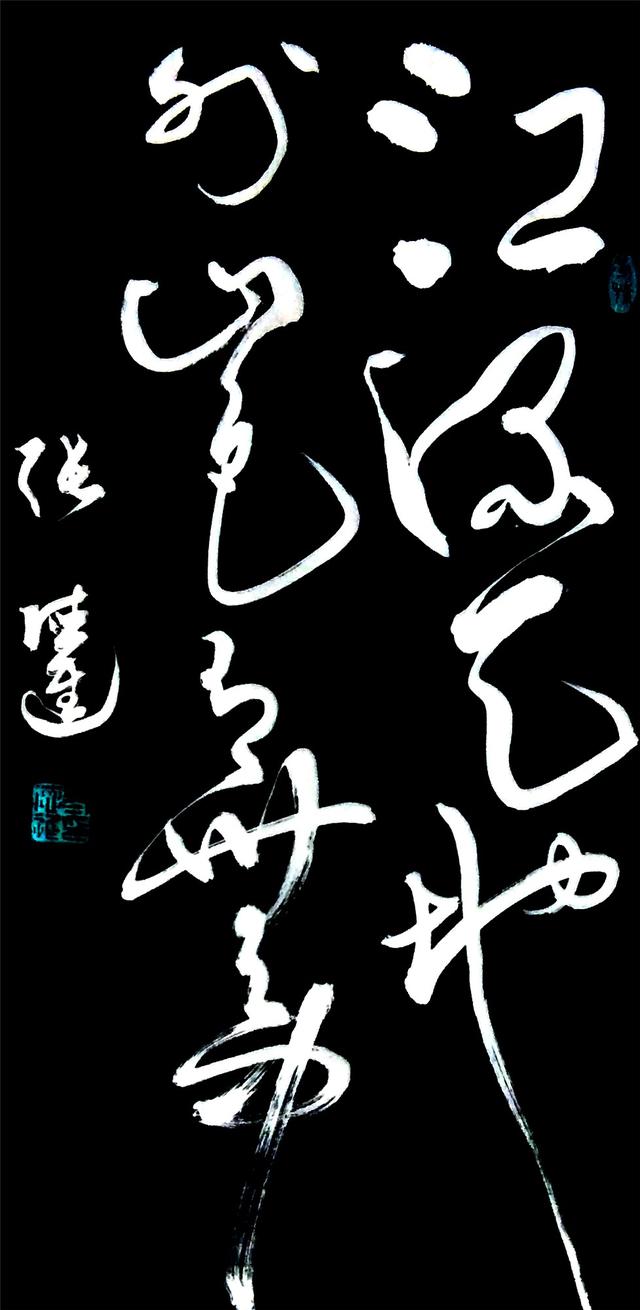 江流天地
外山色有無中
張